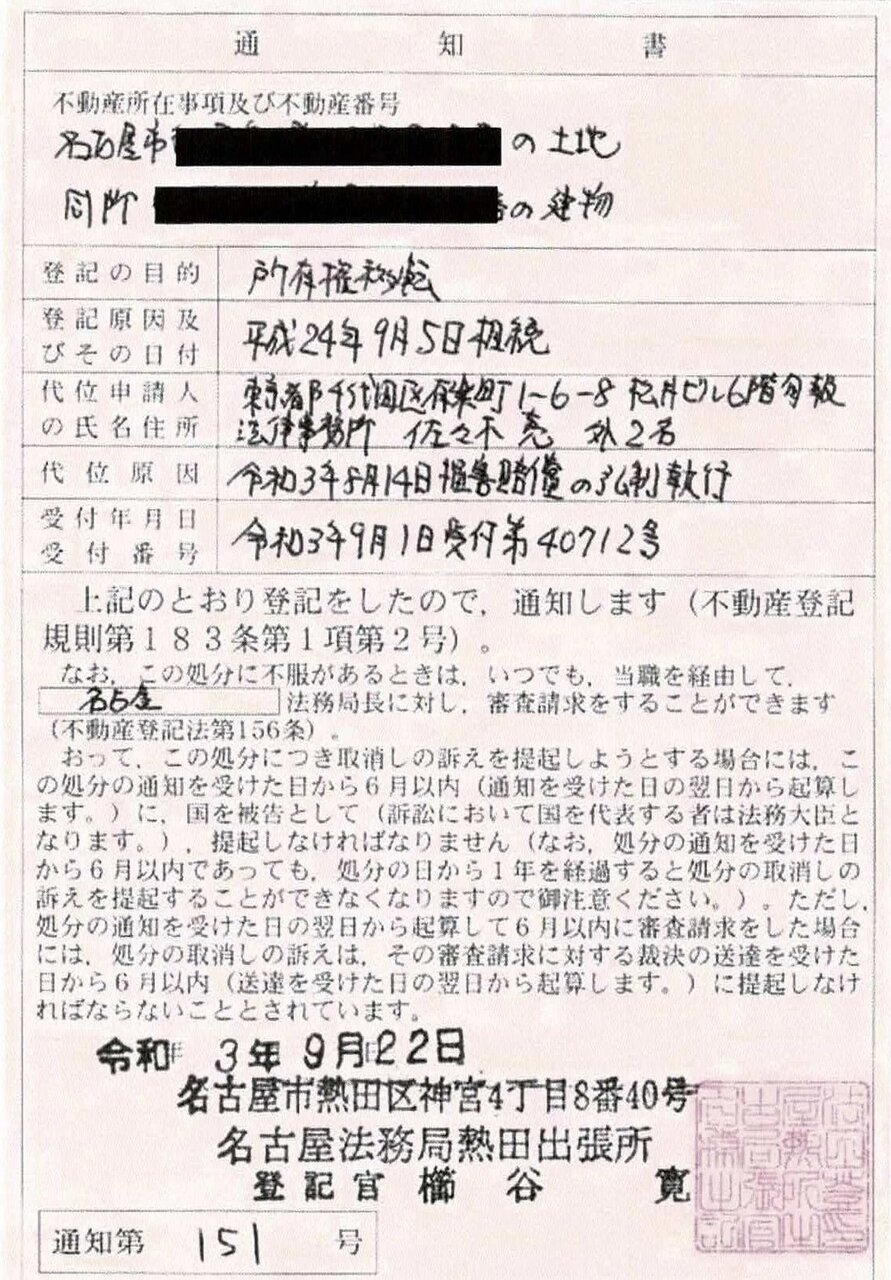 通知書
不動産所在事項及び不動産番号
名古屋市 の土地
同所 の建物
登記の目的 所有権移転
登記原因及びその日付 平成24年9月5日相続
代位申請人の氏名住所 東京都千代田区 町1-6-8 松井ビル6階
法律事務所 佐々木亮 外2名
代位原因 令和3年5月14日損害賠償の強制執行
受付年月日受付番号 令和3年9月1日受付第40712号
上記のとおり登記をしたので,通知します(不動産登記
規則第183条第1項第2号)。
なお,この処分に不服があるときは,いつでも,当職を経由して,
名古屋 法務局長に対し,審査請求をすることができます
(不動産登記法第156条)。
おって,この処分につき取消しの訴えを提起しようとする場合には,こ
の処分の通知を受けた日から6月以内(通知を受けた日の翌日から起算し
ます。)に,国を被告として(訴訟において国を代表する者は法務大臣と
なります。),提起しなければなりません(なお,処分の通知を受けた日
から6月以内であっても,処分の日から1年を経過すると処分の取消しの
訴えを提起することができなくなりますので御注意ください。)。ただし,
処分の通知を受けた日の翌日から起算して6月以内に審査請求をした場合
には,処分の取消しの訴えは,その審査請求に対する裁決の送達を受けた
日から6月以内(送達を受けた日の翌日から起算します。)に提起しなけ
ればならないこととされています。
令和3年9月22日
名古屋市熱田区神宮4丁目8番40号
名古屋法務局熱田出張所
登記官 櫛谷 寛
通知第 151 号